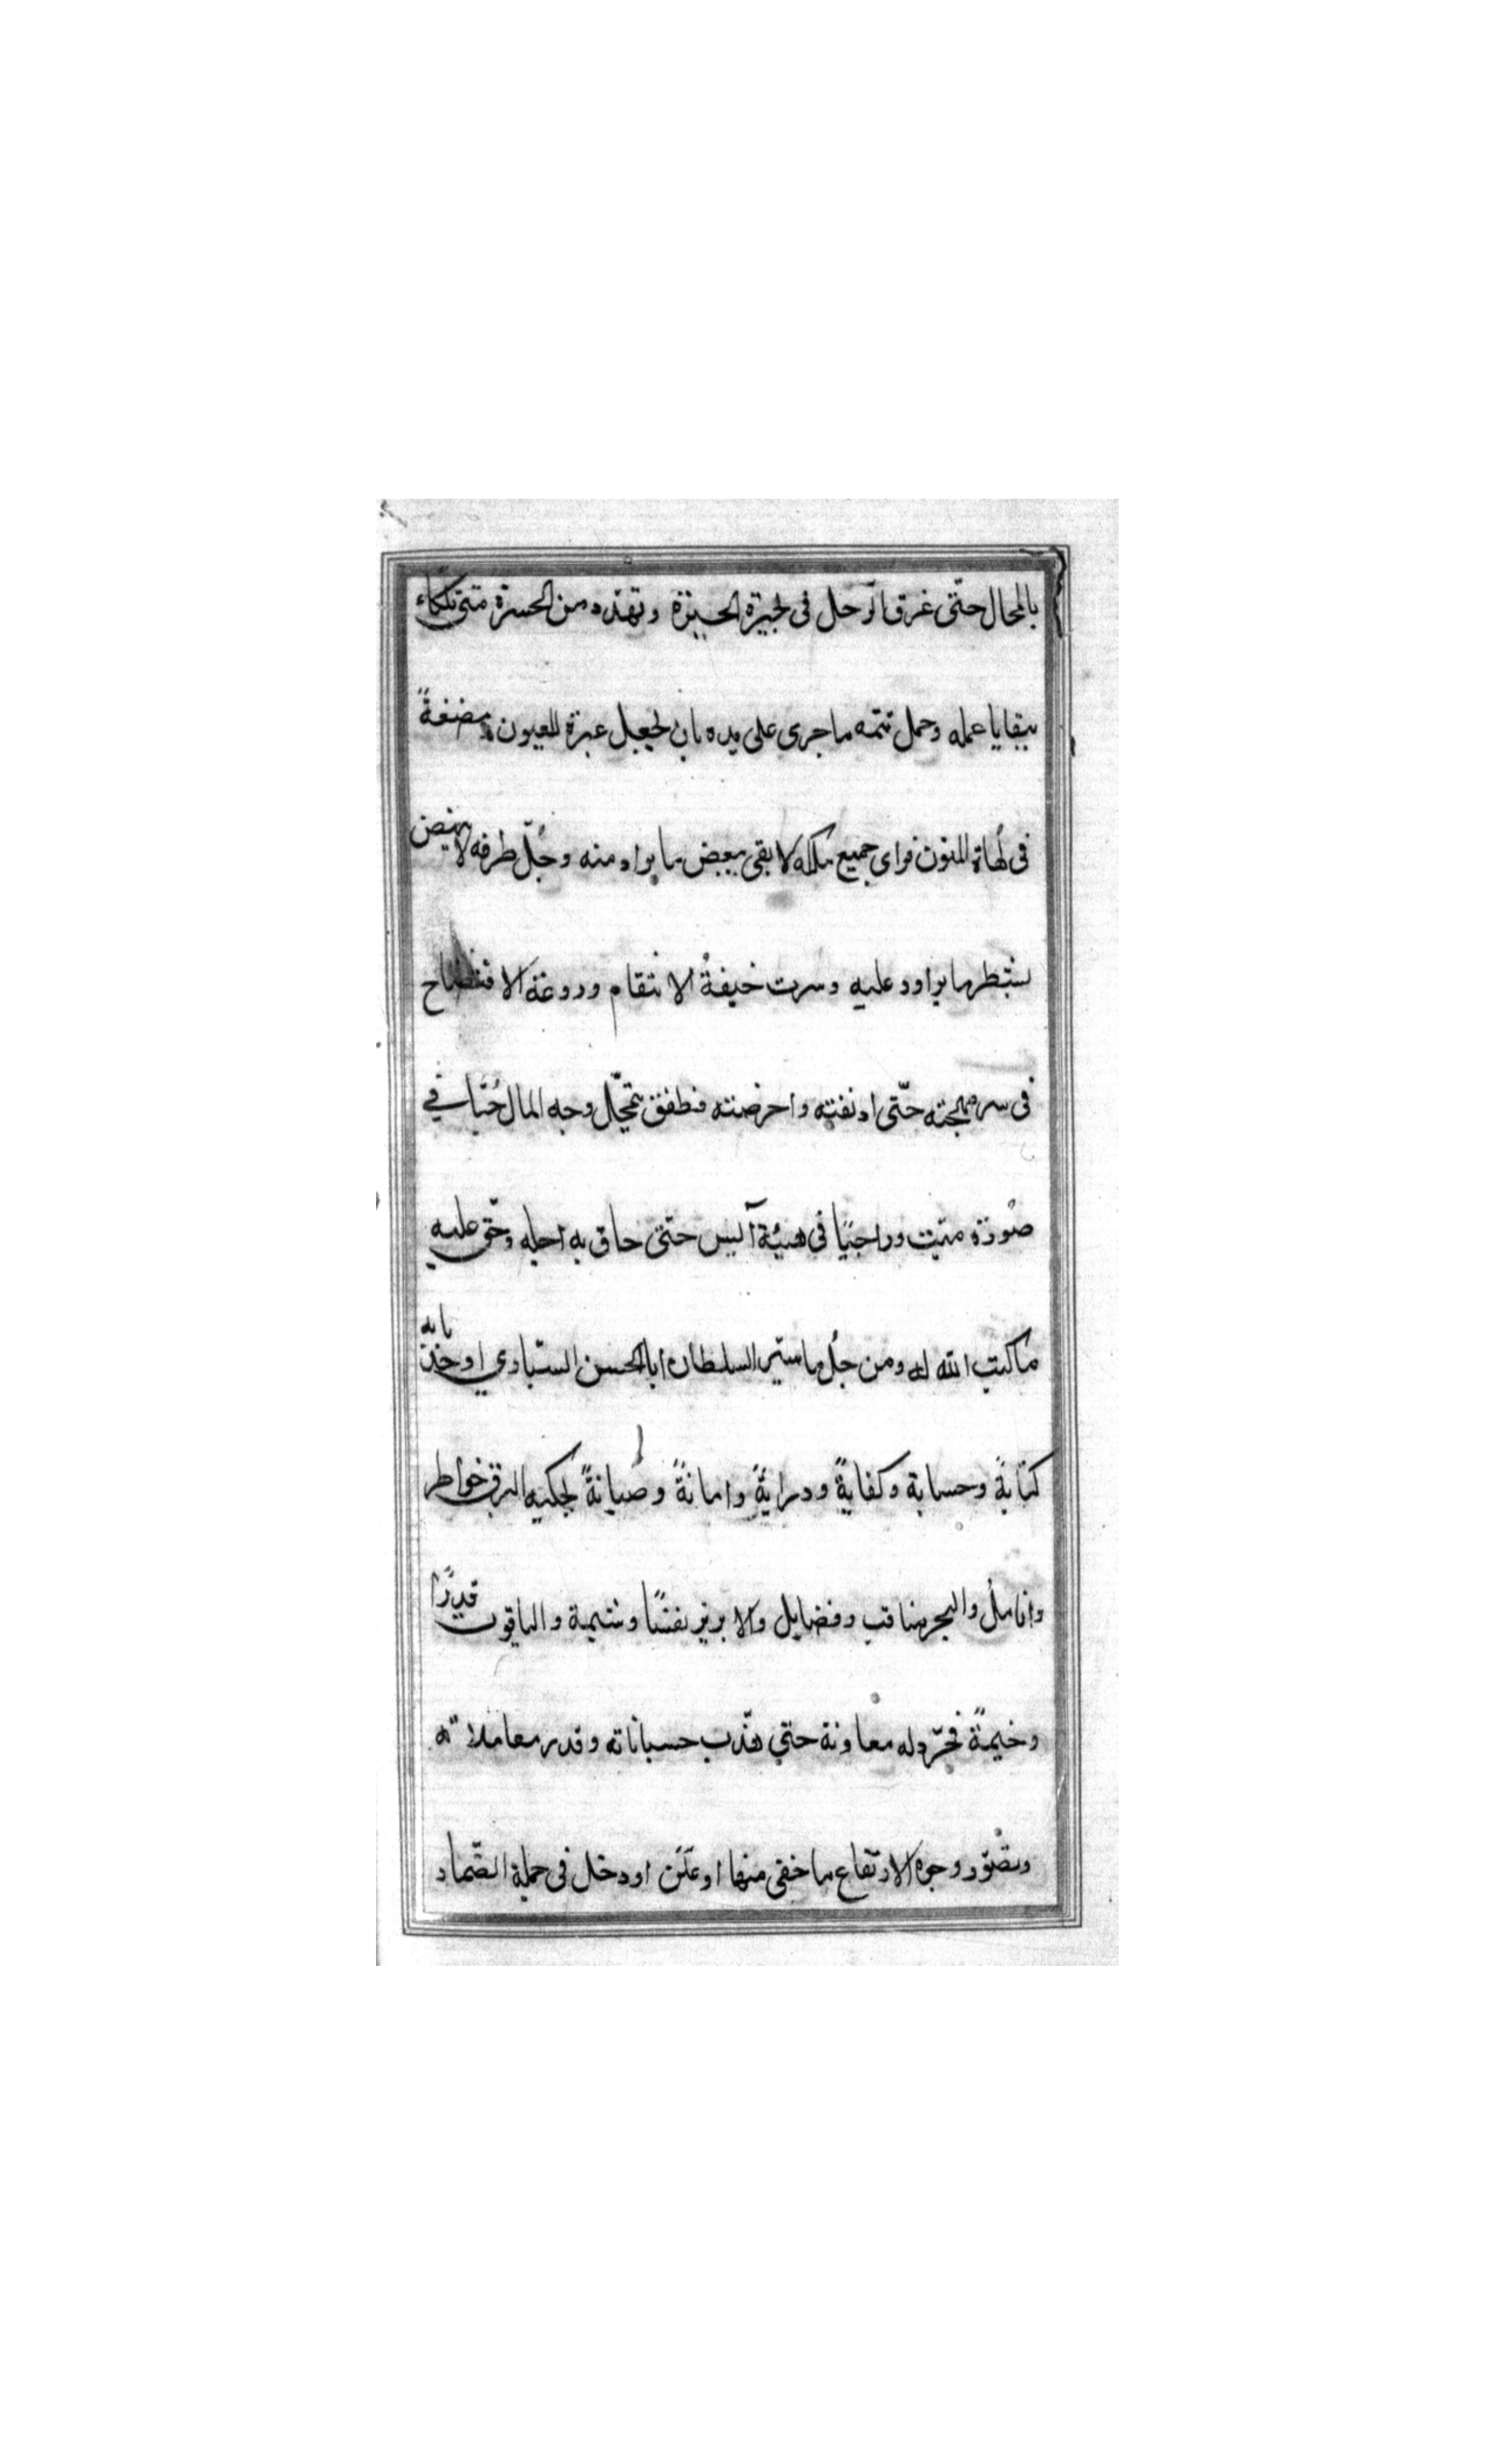 بالمحال حتّى غرق الوحل فى لجيزة الحيزة وتهدده من الحسرة متى تلكاء
ببقايا عمله وحمل تتمه ما جرى على يده بان يجعل عبرة للعيون ومضغةً
فى لُهاة المنون فراى جميع ملكه لا يفى ببعض ما يراد منه وجُلّ طرفه لا ينهض
بشطر ما يراود عليه وسرت خيفةُ الانتقام وروعة الافتضاح
فى سر مهجته حتّى ادنفته واحرضته فطفق يتمحّل وجه المال حُيّا في
صُورة ميّت وراجيًا فى هيئة آيس حتّى حاق به اجله وحقّ عليه
ما كتب الله له ومن جُلّ ما ستير السلطان ابا الحسن السّياري اوحدّ بابه
كتابةً وحسابة وكفايةً ودرايةً وامانةً وصُيانةً يحكيه البرق خواطر
وانامل والبحر مناقب وفضايل والابريز نفسًا وشيمة والياقوت قدرًا
وخيمةً فجرّد له معاونة حتي هذّب حسباناته وقدر معاملاته
وتصّور وجوه الارتفاع ما خفى منها او علَن او دخل فى جملة الضّماد